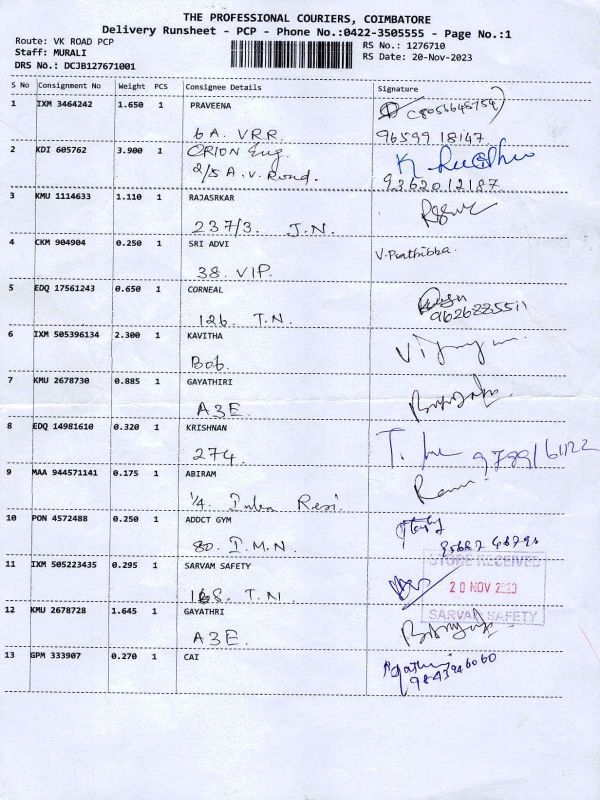 THE PROFESSIONAL COURIERS, COIMBATORE
Delivery Runsheet - PCP - Phone No.:0422-3505555 - Page No.:1
Route: VK ROAD PCP
RS No.: 1276710
Staff: MURALI
RS Date: 20-Nov-2023
DRS No.: DCJB127671001
S No Consignment No Weight PCS Consignee Details Signature
1 IXM 3464242 1.650 1 PRAVEENA
6A. VRR. 96599 18147
2 KDI 605762 3.900 1 ORION Eng.
2/5 A.V. Road. 9362012187
3 KMU 1114633 1.110 1 RAJASRKAR
237/3. J.N.
4 CKM 904904 0.250 1 SRI ADVI
38. VIP.
5 EDQ 17561243 0.650 1 CORNEAL
126. T.N. 9626885511
6 IXM 505396134 2.300 1 KAVITHA
Bob.
7 KMU 2678730 0.885 1 GAYATHIRI
A3E.
8 EDQ 14981610 0.320 1 KRISHNAN
274.
9 MAA 944571141 0.175 1 ABIRAM
1/4. Resi.
10 PON 4572488 0.250 1 ADDCT GYM
80. I.M.N.
STORE RECEIVED
11 IXM 505223435 0.295 1 SARVAM SAFETY
T.N. 20 NOV 2023
SARVAM SAFETY
12 KMU 2678728 1.645 1 GAYATHRI
A3E.
13 GPM 333907 0.270 1 CAI
9843946060